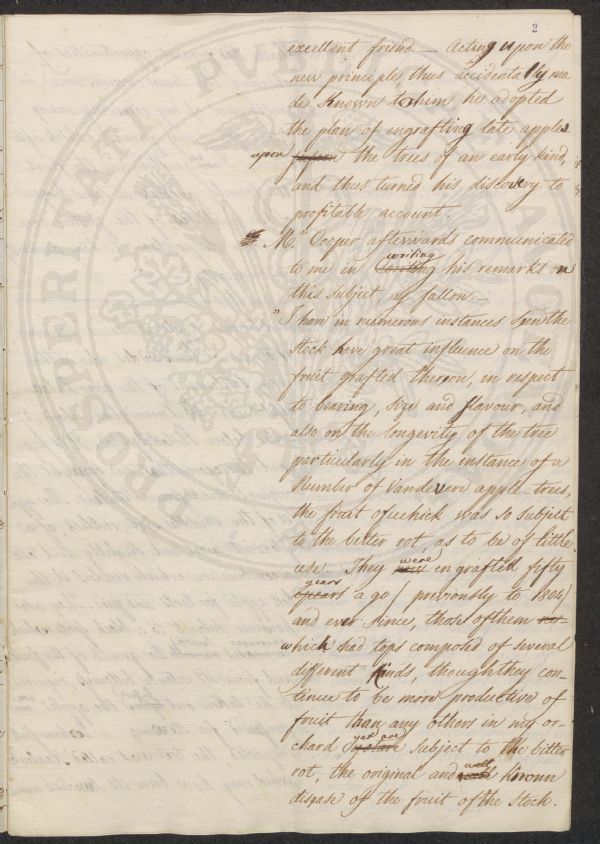 2
excellent friend — Acting upon the
new principle thus accidentally ma
de Known to him he adopted
the plan of engrafting late apples
upon the trees of an early kind,
and thus turned his discovery to
profitable account.
Mr. Cooper afterwards communicated
to me in writing his remarks on
this subject, as follow. —
"I have in numerous instances seen the
stock have great influence on the
fruit grafted thereon, in respect
to bearing, size and flavour, and
also on the longevity of the tree
particularly in the instance of a
Number of Vandevere apple-trees,
the fruit of which was so subject
to the bitter rot, as to be of little
use. They were engrafted fifty
years ago / previously to 1804/
and ever since, those of them
which had tops composed of several
different Kinds, though they con-
tinue to be more productive of
fruit than any others in my or-
chard yet are subject to the bitter
rot, the original and well known
disease of the fruit of the Stock.
PROSPERITATI PUBLICAE